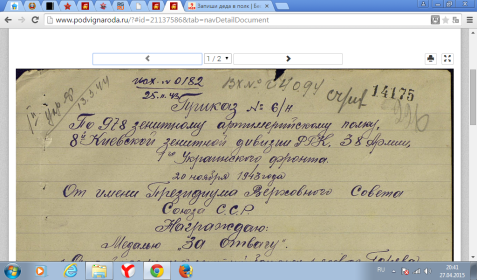 Записи деда в полк | Бе
www.podvignaroda.ru/?#id=21137586&tab=navDetailDocument
1 / 2
исх. № 0182
25.11.43
Вх №
14175
13.3.44
Приказ № 6/н
По 978 зенитному артиллерийскому полку,
8й Киевской зенитной дивизии РГК, 38 Армии,
1го Украинского фронта.
20 ноября 1943 года
От имени Президиума Верховного Совета
Союза С.С.Р
Награждаю:
Медалью "За Отвагу".
RU
20:41
27.04.2015